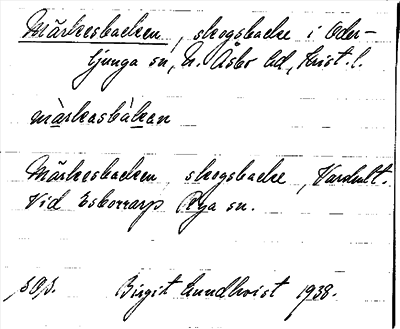 Märkesbacken, skogsbacke i Oder-
ljunga sn, N. Åsbo hd, Krist. l.
màrkasbàkan
Märkesbacken, skogsbacke, Varhult.
Vid Esborrarp Rya sn.
Birgit Lundkvist 1938.